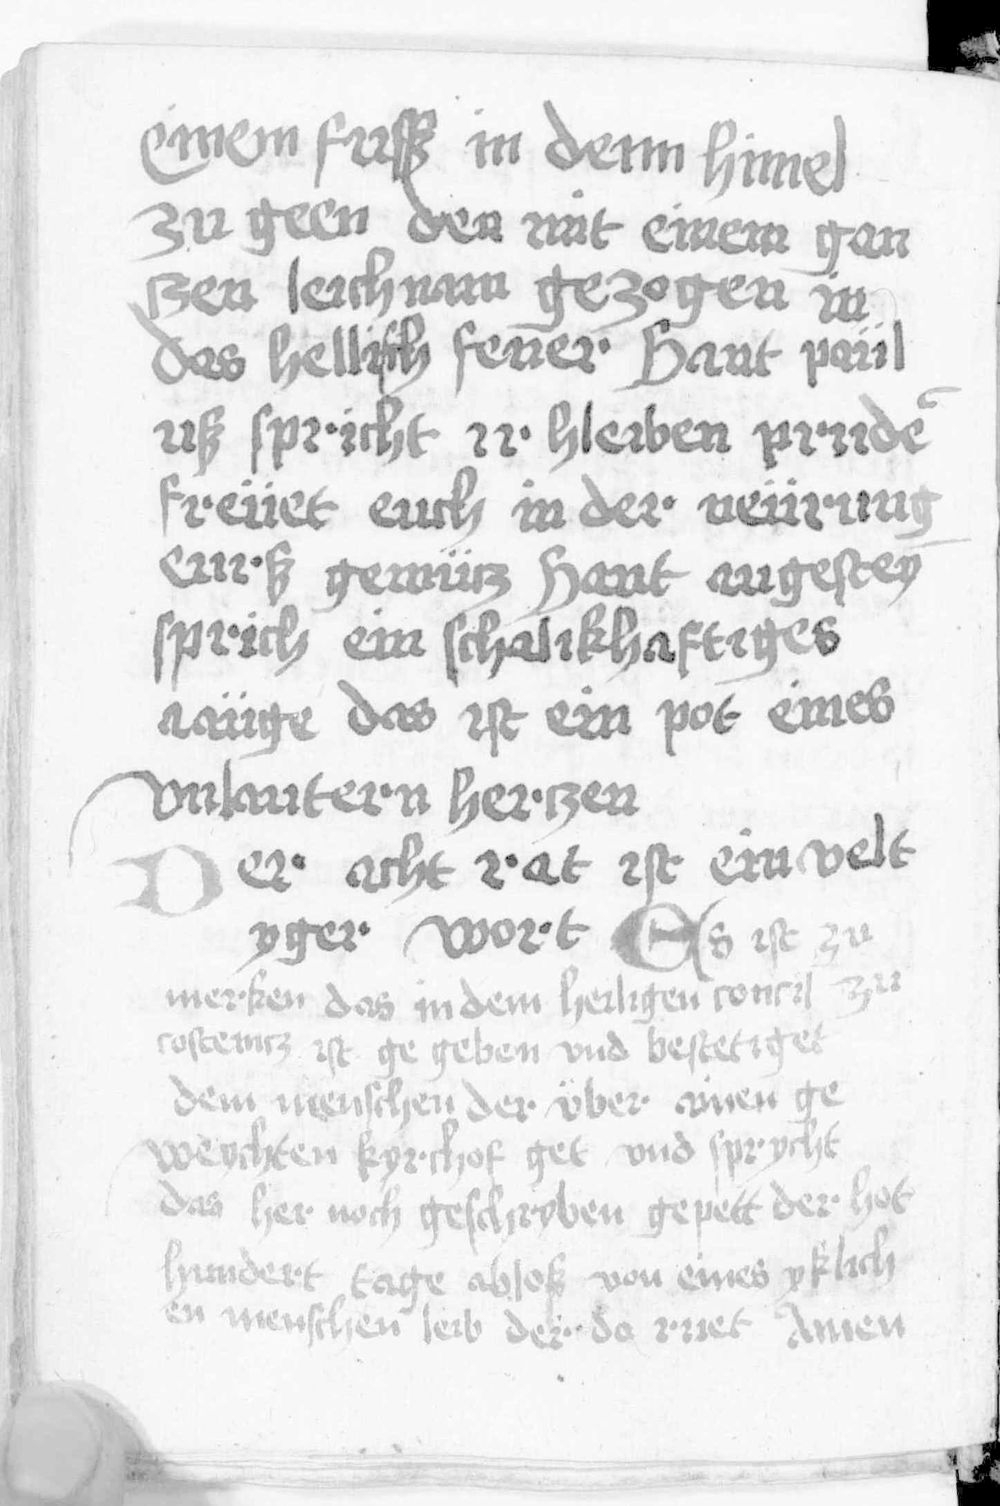 einem fuß in denn himel
zu geen den mit einem gan
czen leichnam gezogen in
das hellisch feüer Sant paül
uß spricht ir hleiben prudē
freüet euch in der neürung
eurß gemücz Sant augestey
sprich ein schalikhaftiges
aaüge das ist ein pot eines
vnlautern herczen
Der acht rat ist ein velt
yger wort Es ist zu
merken das in dem heiligen concil zu
costenicz ist ge geben vnd bestetiget
dem menschen der über ainen ge
weychten kyrchof get vnd sprycht
das her noch geschryben gepett der hot
hundert tage abloß von eines yklich
en menschen leib der do ruet Amen